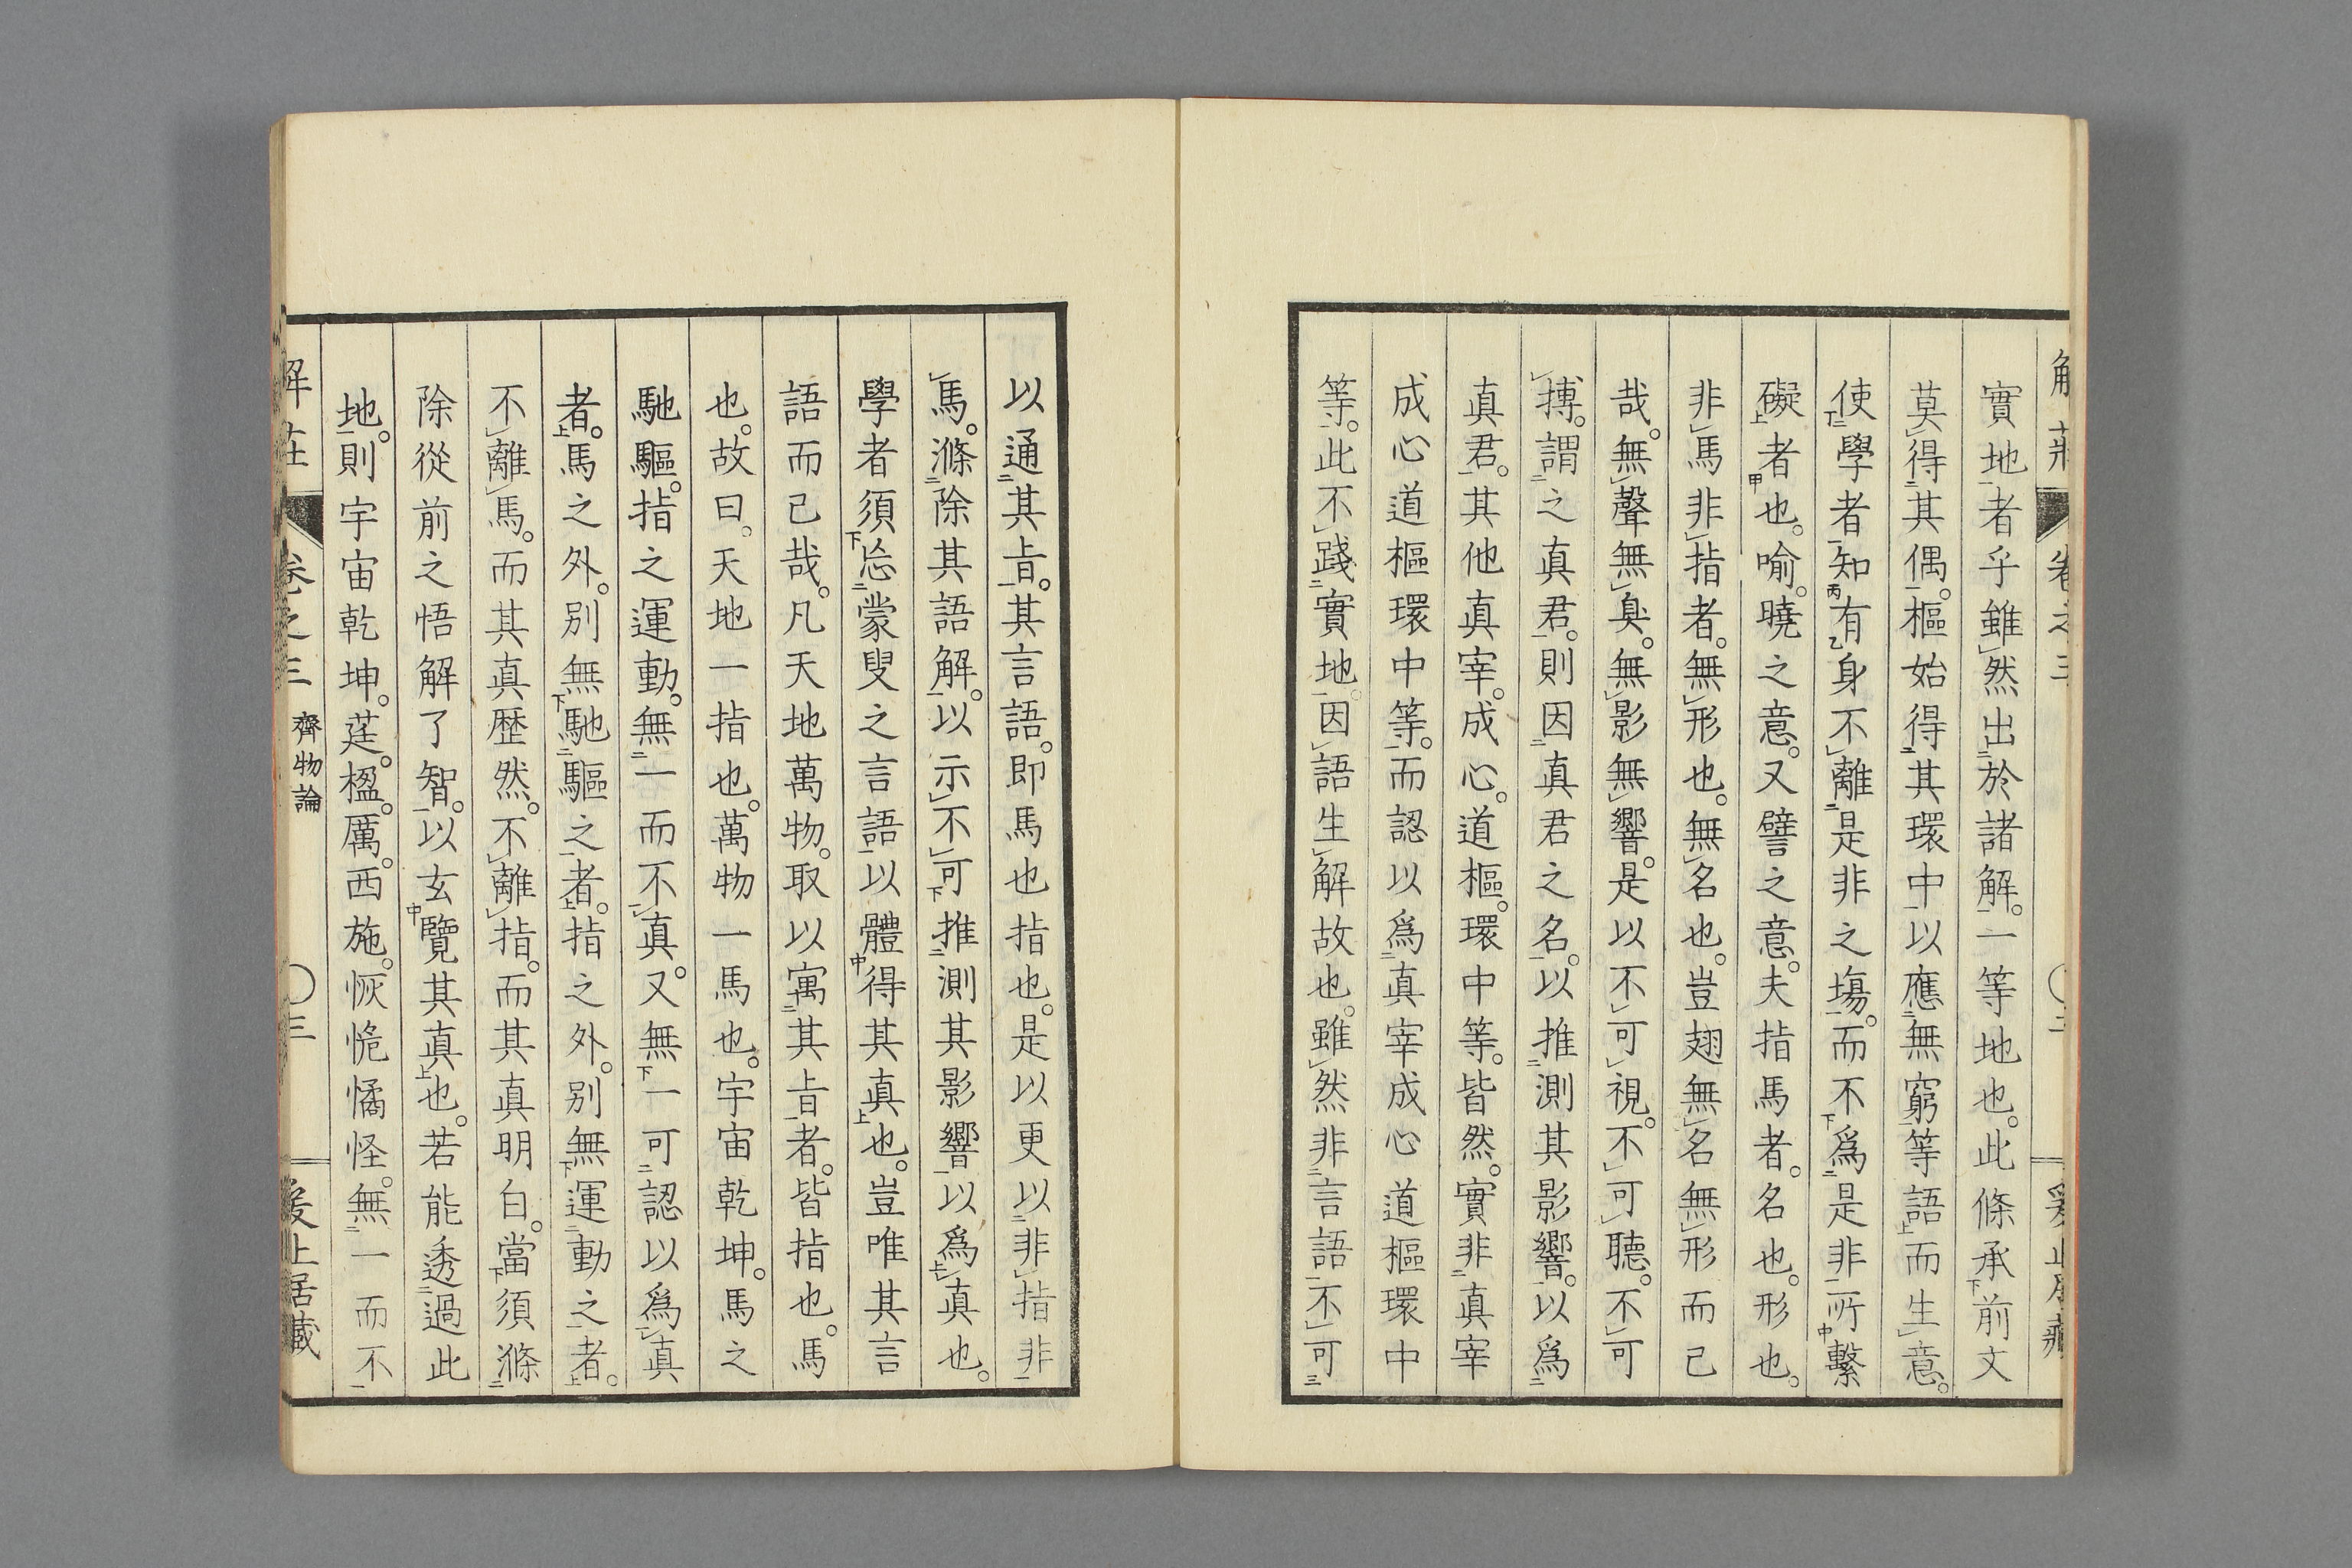 實地者乎雖然出於諸解。一等地也。此條承前文
莫得其偶。樞始得其環中以應無窮等語而生意。
使學者知有身不離是非之塲。而不爲是非所繫
礙者也。喻。曉之意。又譬之意。夫指馬者。名也。形也。
非馬非指者。無形也。無名也。豈翅無名無形而已
哉。無聲無臭。無影無響。是以不可視。不可聽。不可
搏。謂之真君。則因真君之名。以推測其影響。以爲
真君。其他真宰。成心。道樞。環中等。皆然。實非真宰
成心道樞環中等。而認以爲真宰成心道樞環中
等。此不踐實地。因語生解故也。雖然非言語不可
以通其旨。其言語。即馬也指也。是以更以非指非
馬。滌除其語解。以示不可推測其影響以爲真也。
學者須忘蒙叟之言語以體得其真也。豈唯其言
語而已哉。凡天地萬物。取以寓其旨者。皆指也。馬
也。故曰。天地一指也。萬物一馬也。宇宙乾坤。馬之
馳驅。指之運動。無一而不真。又無一可認以爲真
者。馬之外。别無馳驅之者。指之外。别無運動之者。
不離馬。而其真歷然。不離指。而其真明白。當須滌
除從前之悟解了智。以玄覽其真也。若能透過此
地。則宇宙乾坤。莛。楹。厲。西施。恢恑憰怪。無一而不
解莊 卷之三 齊物論 〇三 爰止居藏